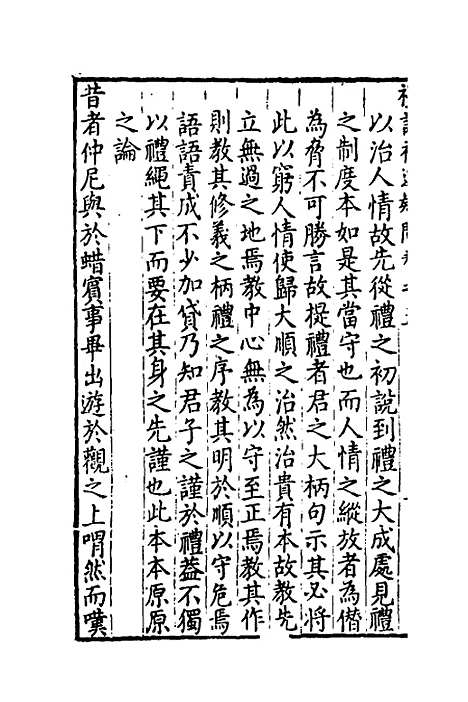 以治人情故先從禮之初說到禮之大成處見禮
之制度本如是其當守也而人情之縱放者為僣
為脅不可勝言故提禮者君之大柄句示其必將
此以窮人情使歸大順之治然治貴有本故教先
立無過之地焉教中心無為以守至正焉教其作
則教其修義之柄禮之序教其明於順以守危焉
語語責成不少加貸乃知君子之謹於禮葢不獨
以禮繩其下而要在其身之先謹也此本本原原
之論
昔者仲尼與於蜡賓事畢出遊於觀之上喟然而嘆